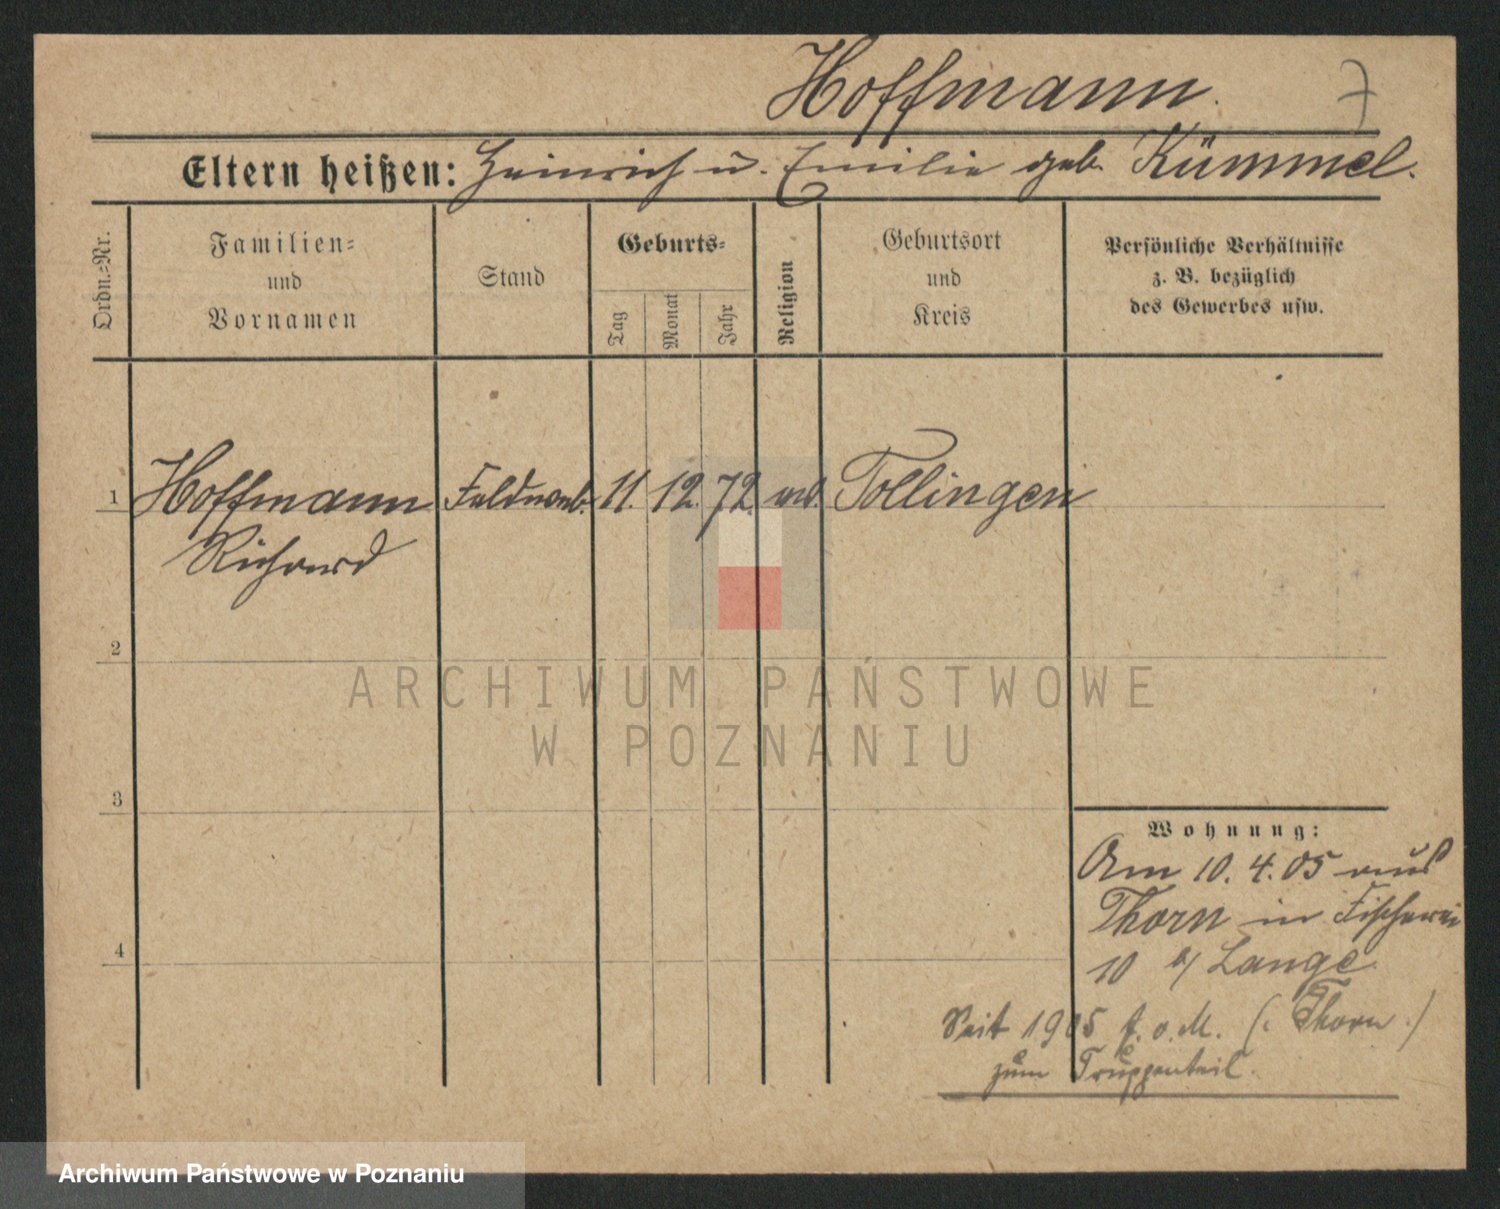 Hoffmann. 7
Eltern heißen: Heinrich u. Emilie geb. Kümmel.
Ordn.=Nr.
Familien=
und
Vornamen
Stand
Geburts=
Tag
Monat
Jahr
Religion
Geburtsort
und
Kreis
Persönliche Verhältnisse
z. B. bezüglich
des Gewerbes usw.
1 Hoffmann Feldweb. 11. 12. 72. Tollingen
Richard
2
ARCHIWUM PAŃSTWOWE
W POZNANIU
3
Wohnung:
Am 10. 4. 05 aus
Thorn in Fischerei
4
10 b/ Lange
Seit 1905 f. o. M. (: Thorn :)
zum Truppenteil.
Archiwum Państwowe w Poznaniu